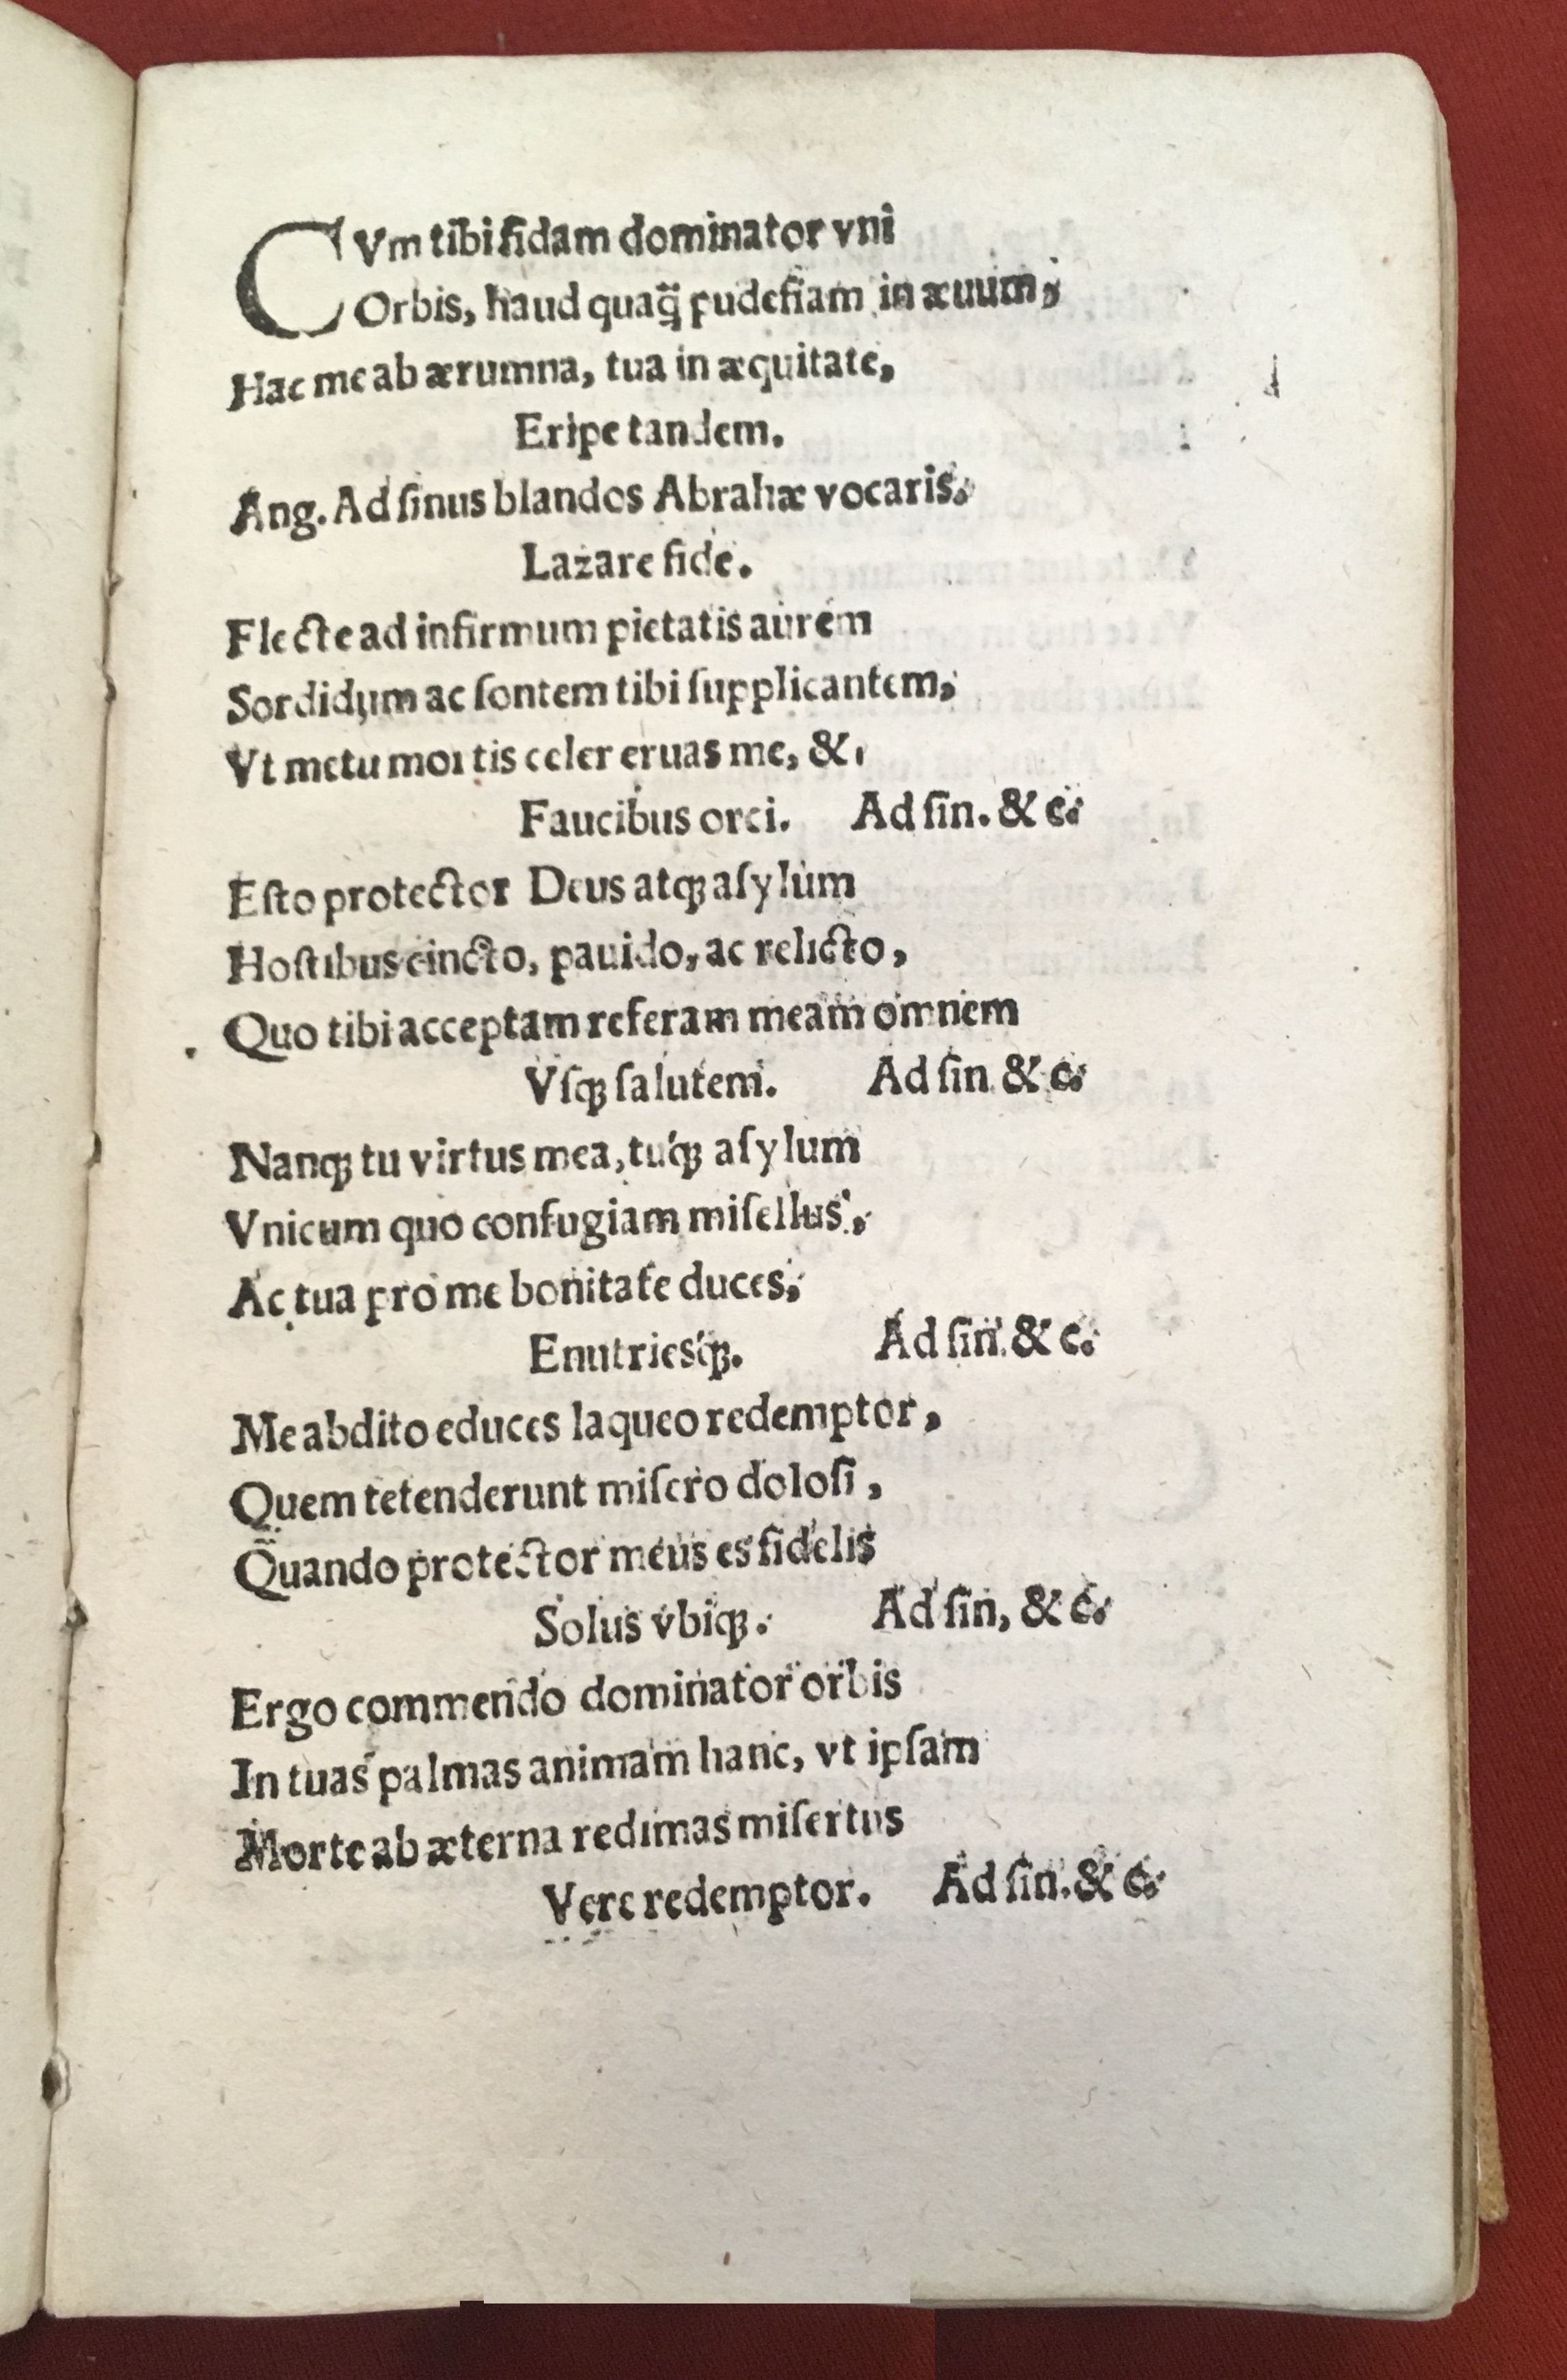 CVm tibi fidam dominator vni
Orbis, haud quaq̃ pudefiam in æuum,
Hac me ab ærumna, tua in æquitate,
Eripe tandem.
Ang. Ad ſinus blandos Abrahæ vocaris.
Lazare fide.
Flecte ad infirmum pietatis aurem
Sordidum ac ſontem tibi ſupplicantem,
Vt metu mortis celer eruas me, &
Faucibus orci. Ad ſin. & c.
Eſto protector Deus atqꝫ aſylum
Hoſtibus cincto, pauido, ac relicto,
Quo tibi acceptam referam meam omnem
Vſqꝫ ſalutem. Ad ſin & c.
Nanqꝫ tu virtus mea, tuq́ꝫ aſylum
Vnicum quo confugiam miſellus,
Ac tua pro me bonitate duces,
Enutriesq́ꝫ. Ad ſin. & c.
Me abdito educes laqueo redemptor,
Quem tetenderunt miſero doloſi,
Quando protector meus es fidelis
Solus vbiqꝫ. Ad ſin, & c.
Ergo commendo dominator orbis
In tuas palmas animam hanc, vt ipſam
Morte ab æterna redimas miſertus
Vere redemptor. Ad ſin. & c.